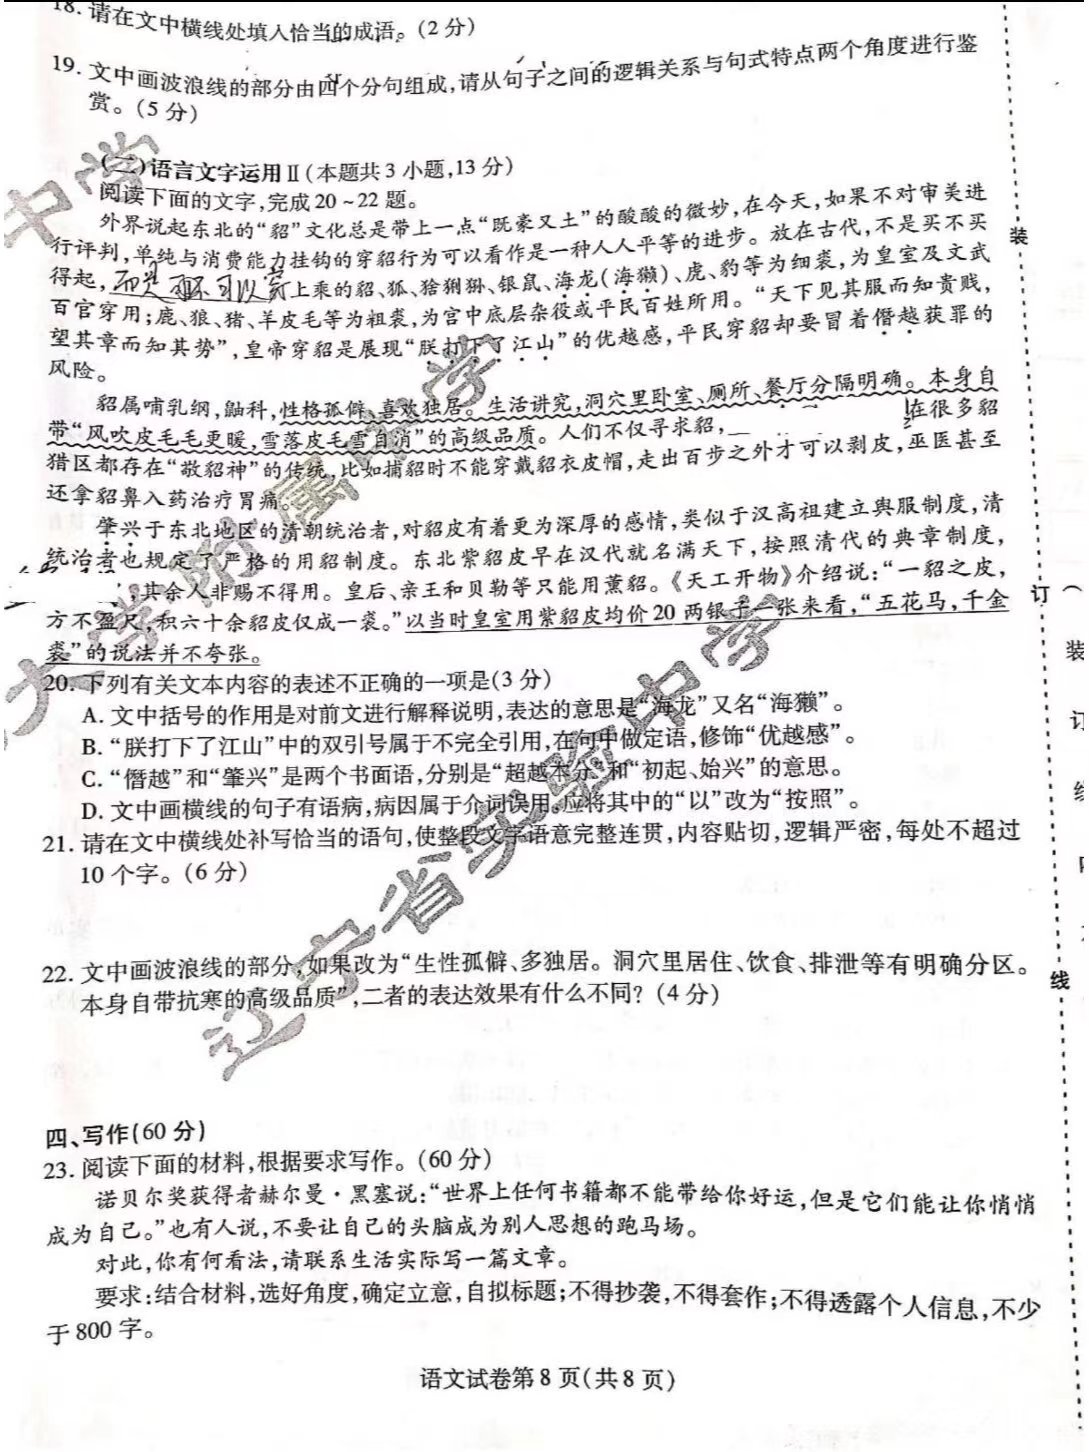 18. 请在文中横线处填入恰当的成语。(2 分)
19. 文中画波浪线的部分由四个分句组成,请从句子之间的逻辑关系与句式特点两个角度进行鉴
赏。(5 分)
(二)语言文字运用Ⅱ(本题共 3 小题,13 分)
阅读下面的文字,完成 20~22 题。
外界说起东北的“貂”文化总是带上一点“既豪又土”的酸酸的微妙,在今天,如果不对审美进
行评判,单纯与消费能力挂钩的穿貂行为可以看作是一种人人平等的进步。放在古代,不是买不买
得起,而是可不可以穿上乘的貂、狐、猞猁狲、银鼠、海龙(海獭)、虎、豹等为细裘,为皇室及文武
百官穿用;鹿、狼、猪、羊皮毛等为粗裘,为宫中底层杂役或平民百姓所用。“天下见其服而知贵贱,
望其章而知其势”,皇帝穿貂是展现“朕打下了江山”的优越感,平民穿貂却要冒着僭越获罪的
风险。
貂属哺乳纲,鼬科,性格孤僻,喜欢独居。生活讲究,洞穴里卧室、厕所、餐厅分隔明确。本身自
带“风吹皮毛毛更暖,雪落皮毛雪自消”的高级品质。人们不仅寻求貂, 在很多貂
猎区都存在“敬貂神”的传统,比如捕貂时不能穿戴貂衣皮帽,走出百步之外才可以剥皮,巫医甚至
还拿貂鼻入药治疗胃痛
肇兴于东北地区的清朝统治者,对貂皮有着更为深厚的感情,类似于汉高祖建立舆服制度,清
统治者也规定了严格的用貂制度。东北紫貂皮早在汉代就名满天下,按照清代的典章制度,
,其余人非赐不得用。皇后、亲王和贝勒等只能用薰貂。《天工开物》介绍说:“一貂之皮,
方不盈尺,积六十余貂皮仅成一裘。”以当时皇室用紫貂皮均价 20 两银子一张来看,“五花马,千金
裘”的说法并不夸张。
20. 下列有关文本内容的表述不正确的一项是(3 分)
A. 文中括号的作用是对前文进行解释说明,表达的意思是“海龙”又名“海獭”。
B. “朕打下了江山”中的双引号属于不完全引用,在句中做定语,修饰“优越感”。
C. “僭越”和“肇兴”是两个书面语,分别是“超越本分”和“初起、始兴”的意思。
D. 文中画横线的句子有语病,病因属于介词误用。应将其中的“以”改为“按照”。
21. 请在文中横线处补写恰当的语句,使整段文字语意完整连贯,内容贴切,逻辑严密,每处不超过
10 个字。(6 分)
22. 文中画波浪线的部分,如果改为“生性孤僻、多独居。洞穴里居住、饮食、排泄等有明确分区。
本身自带抗寒的高级品质”,二者的表达效果有什么不同? (4 分)
四、写作(60 分)
23. 阅读下面的材料,根据要求写作。(60 分)
诺贝尔奖获得者赫尔曼·黑塞说:“世界上任何书籍都不能带给你好运,但是它们能让你悄悄
成为自己。”也有人说,不要让自己的头脑成为别人思想的跑马场。
对此,你有何看法,请联系生活实际写一篇文章。
要求:结合材料,选好角度,确定立意,自拟标题;不得抄袭,不得套作;不得透露个人信息,不少
于 800 字。
语文试卷第 8 页(共 8 页)
装
订
线
装
订
中学
大学附属中学
辽宁省实验中学